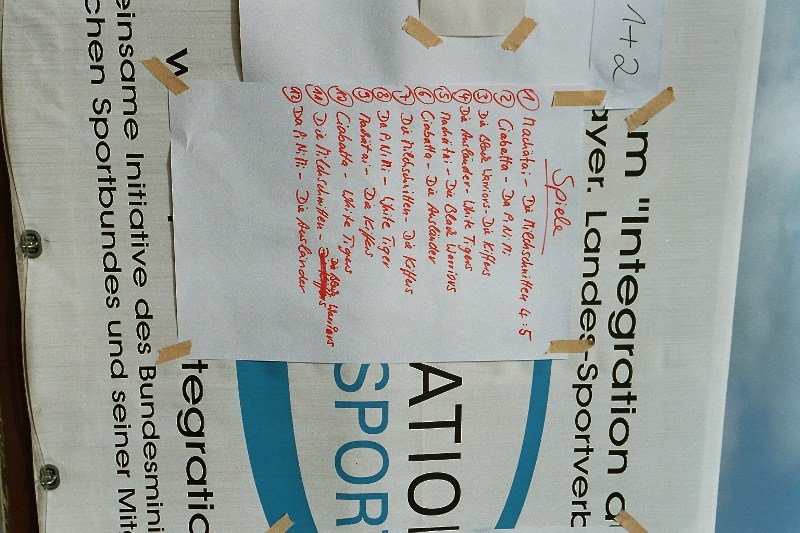 1+2
m "Integration d
ayer. Landes-Sportverb
Spiele
① Machatai - Die Milchschnitten 4:5
② Ciabatta - Da Pi Ni Mi
③ Die Black Warriors - Die Kiffers
④ Die Ausländer - White Tigers
⑤ Machatai - Die Black Warriors
⑥ Ciabatta - Die Ausländer
⑦ Die Milchschnitten - Die Kiffers
⑧ Da Pi Ni Mi - White Tiger
⑨ Machatai - Die Kiffers
⑩ Ciabatta - White Tigers
⑪ Die Milchschnitten - Die Black Warriors
⑫ Da Pi Ni Mi - Die Ausländer
ATIO
SPORT
W
tegratic
einsame Initiative des Bundesmini
chen Sportbundes und seiner Mit